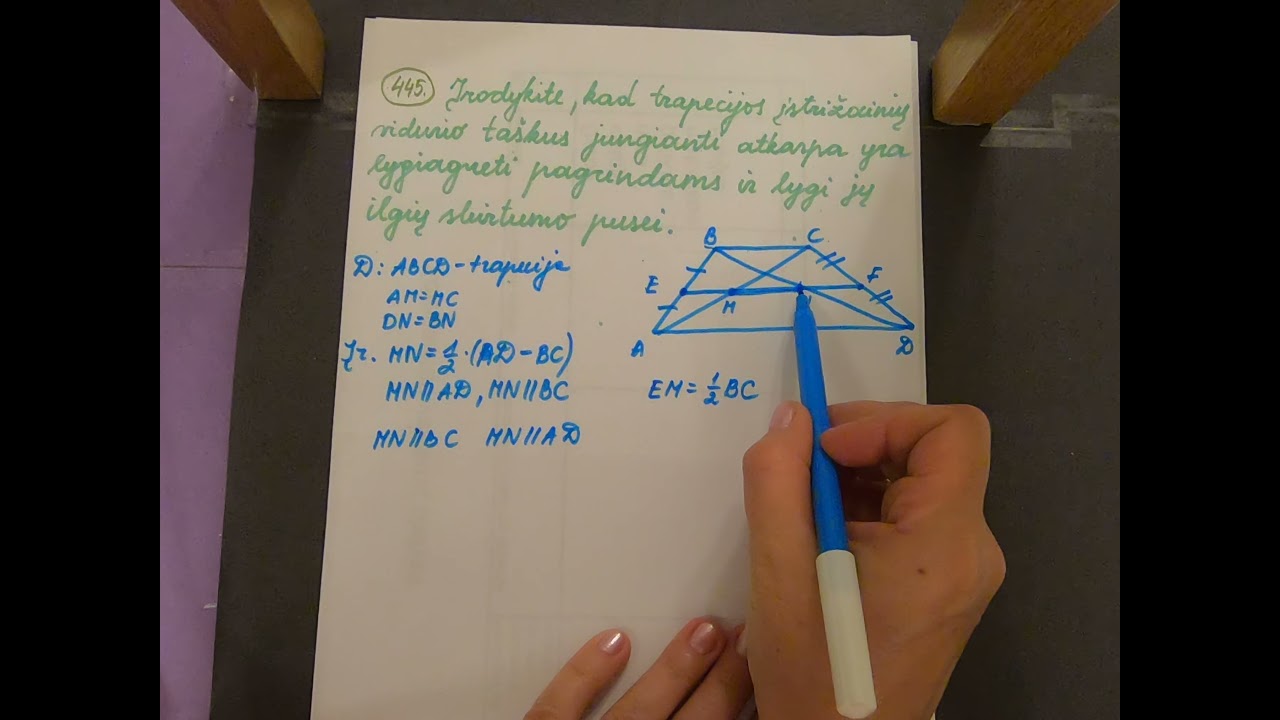 445. Įrodykite, kad trapecijos įstrižainių
vidurio taškus jungianti atkarpa yra
lygiagreti pagrindams ir lygi jų
ilgių skirtumo pusei.
B C
D: ABCD - trapecija
E F
AM = MC
M
DN = BN
A D
Įr. MN = 1/2 · (AD - BC)
MN || AD, MN || BC
EM = 1/2 BC
MN || BC MN || AD